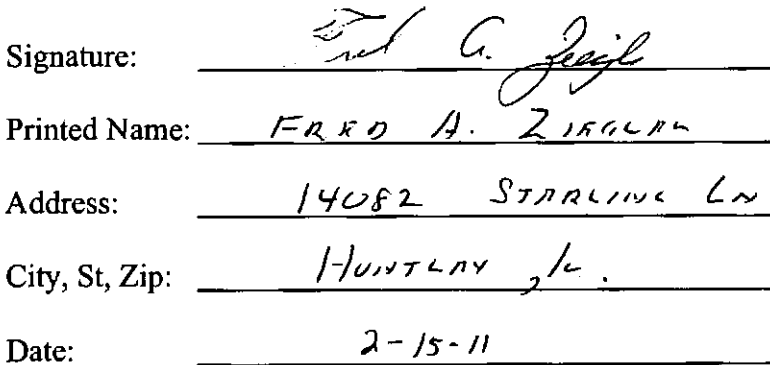 Signature: Fred A. Ziegler
Printed Name: FRED A. ZIEGLER
Address: 14082 STARLING LN
City, St, Zip: HUNTLEY, IL.
Date: 2-15-11